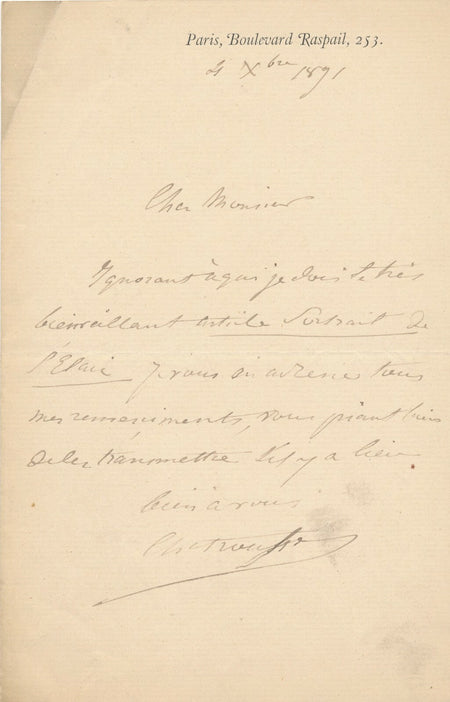 Paris, Boulevard Raspail, 253.
4 Xbre 1891
Cher Monsieur
Ignorant à qui je dois le très
bienveillant article Portrait de
l'Eclair je vous en adresse tous
mes remerciments, vous priant bien
de les transmettre s'il y a lieu
bien à vous